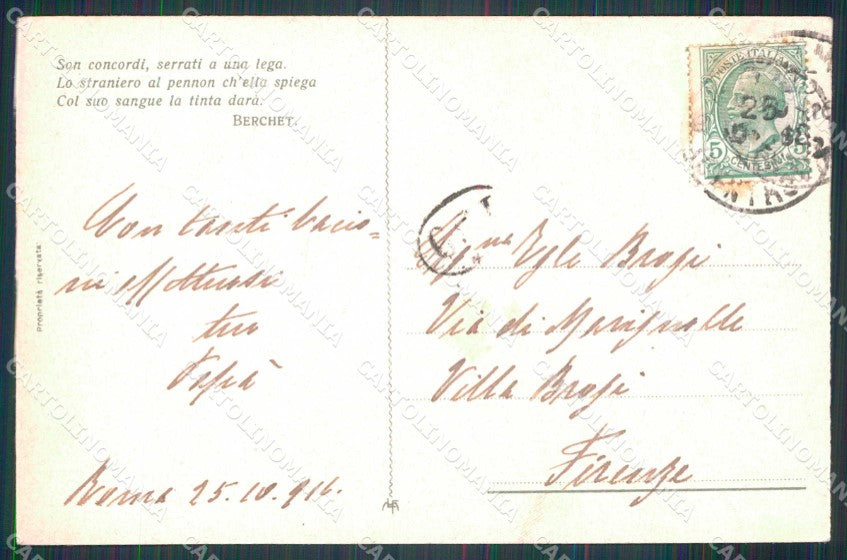 Son concordi, serrati a una lega.
Lo straniero al pennon ch'ella spiega
Col suo sangue la tinta darà.
BERCHET.
Proprietà riservata
POSTE ITALIANE
25
5
CENTESIMI
Con tanti bacio-
ni affettuosi
tuo
Papà
Roma 25.10.916.
Sig.na Egle Brogi
Via di Marignolle
Villa Brogi
Firenze
CARTOLINOMANIA